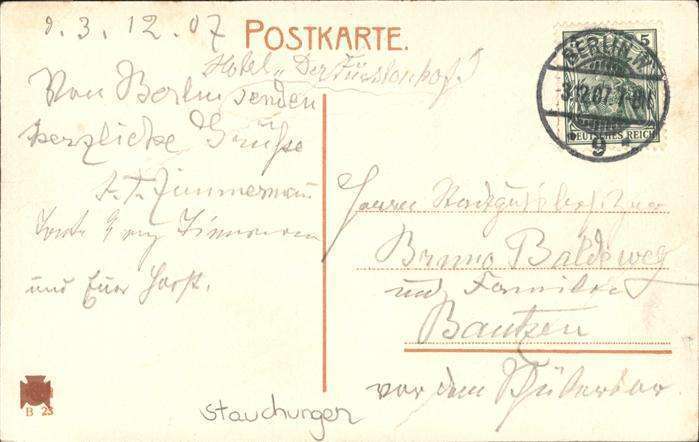 d. 3. 12. 07
POSTKARTE.
Hotel „Der Fürstenhof"
Von Berlin senden
herzliche Grüße
Zimmermann
und Euer Horst.
BERLIN W
3.12.07
9
5
DEUTSCHES REICH
Herrn Stadtgutsbesitzer
Bruno Baldeweg
und Familie
Bautzen
vor dem
B 23
Stauchungen